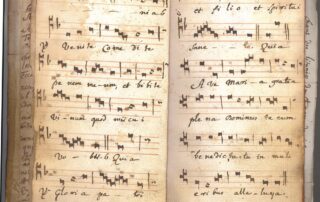 Ve ni te Co me di te
Pa nem me um et bi bi te
Vi num quod mis cu i
Vo bis Quia
Glo ri a pa tri
et fi li o et Spiritui
Sanc to. Quia
A ve Mari a gratia
ple na Dominus te cum
benedicta tu in muli
eribus alle lu ya.